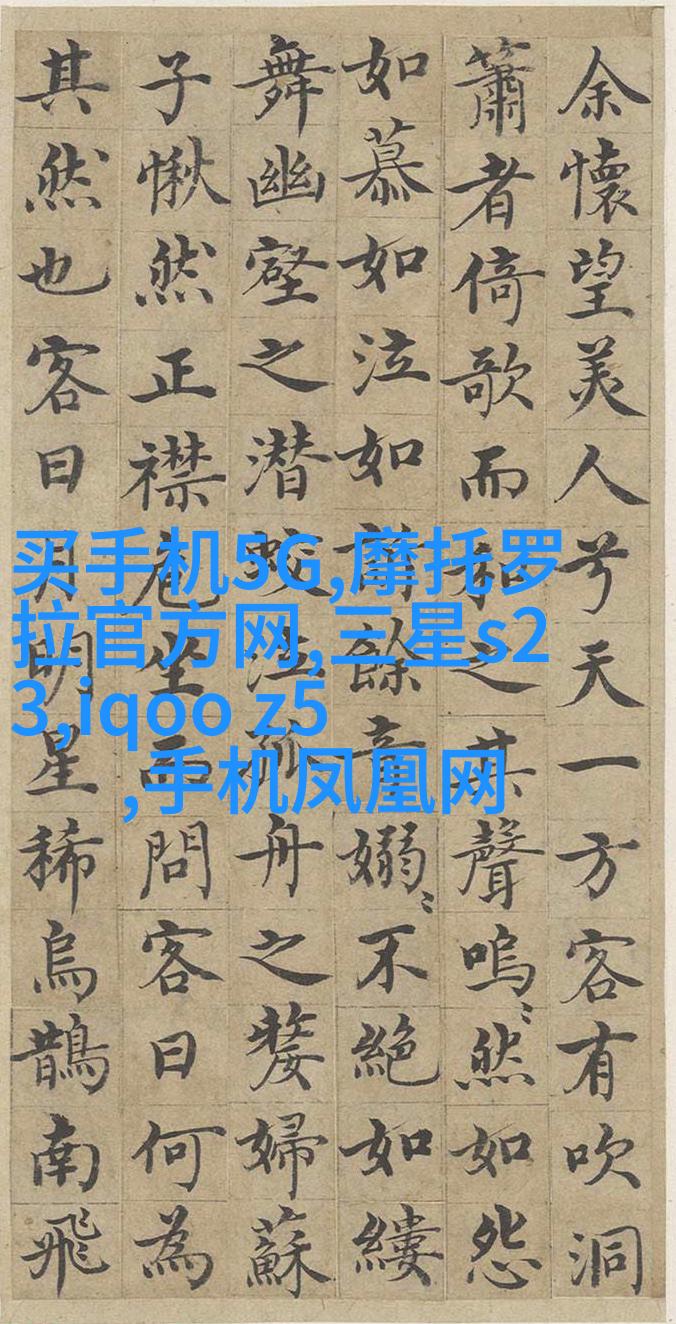 余懷望美人兮天一方客有吹洞
簫者倚歌而和之其聲嗚〻然如怨
如慕如泣如餘音嫋〻不絕如縷
舞幽壑之潛蛟泣孤舟之嫠婦蘇
子愀然正襟危坐而問客曰何為
其然也客曰月明星稀烏鵲南飛
买手机5G,摩托罗
拉官方网,三星s2
3,iqoo z5
,手机凤凰网